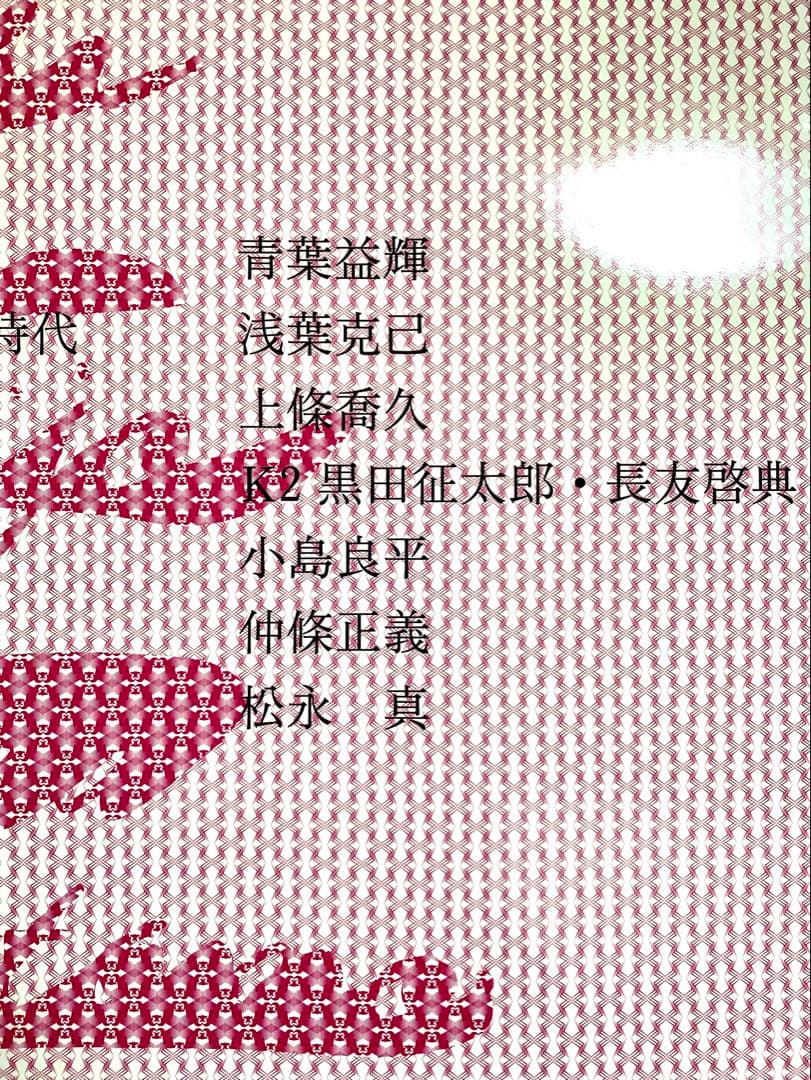 時代
青葉益輝
浅葉克己
上條喬久
K2 黒田征太郎・長友啓典
小島良平
仲條正義
松永　真